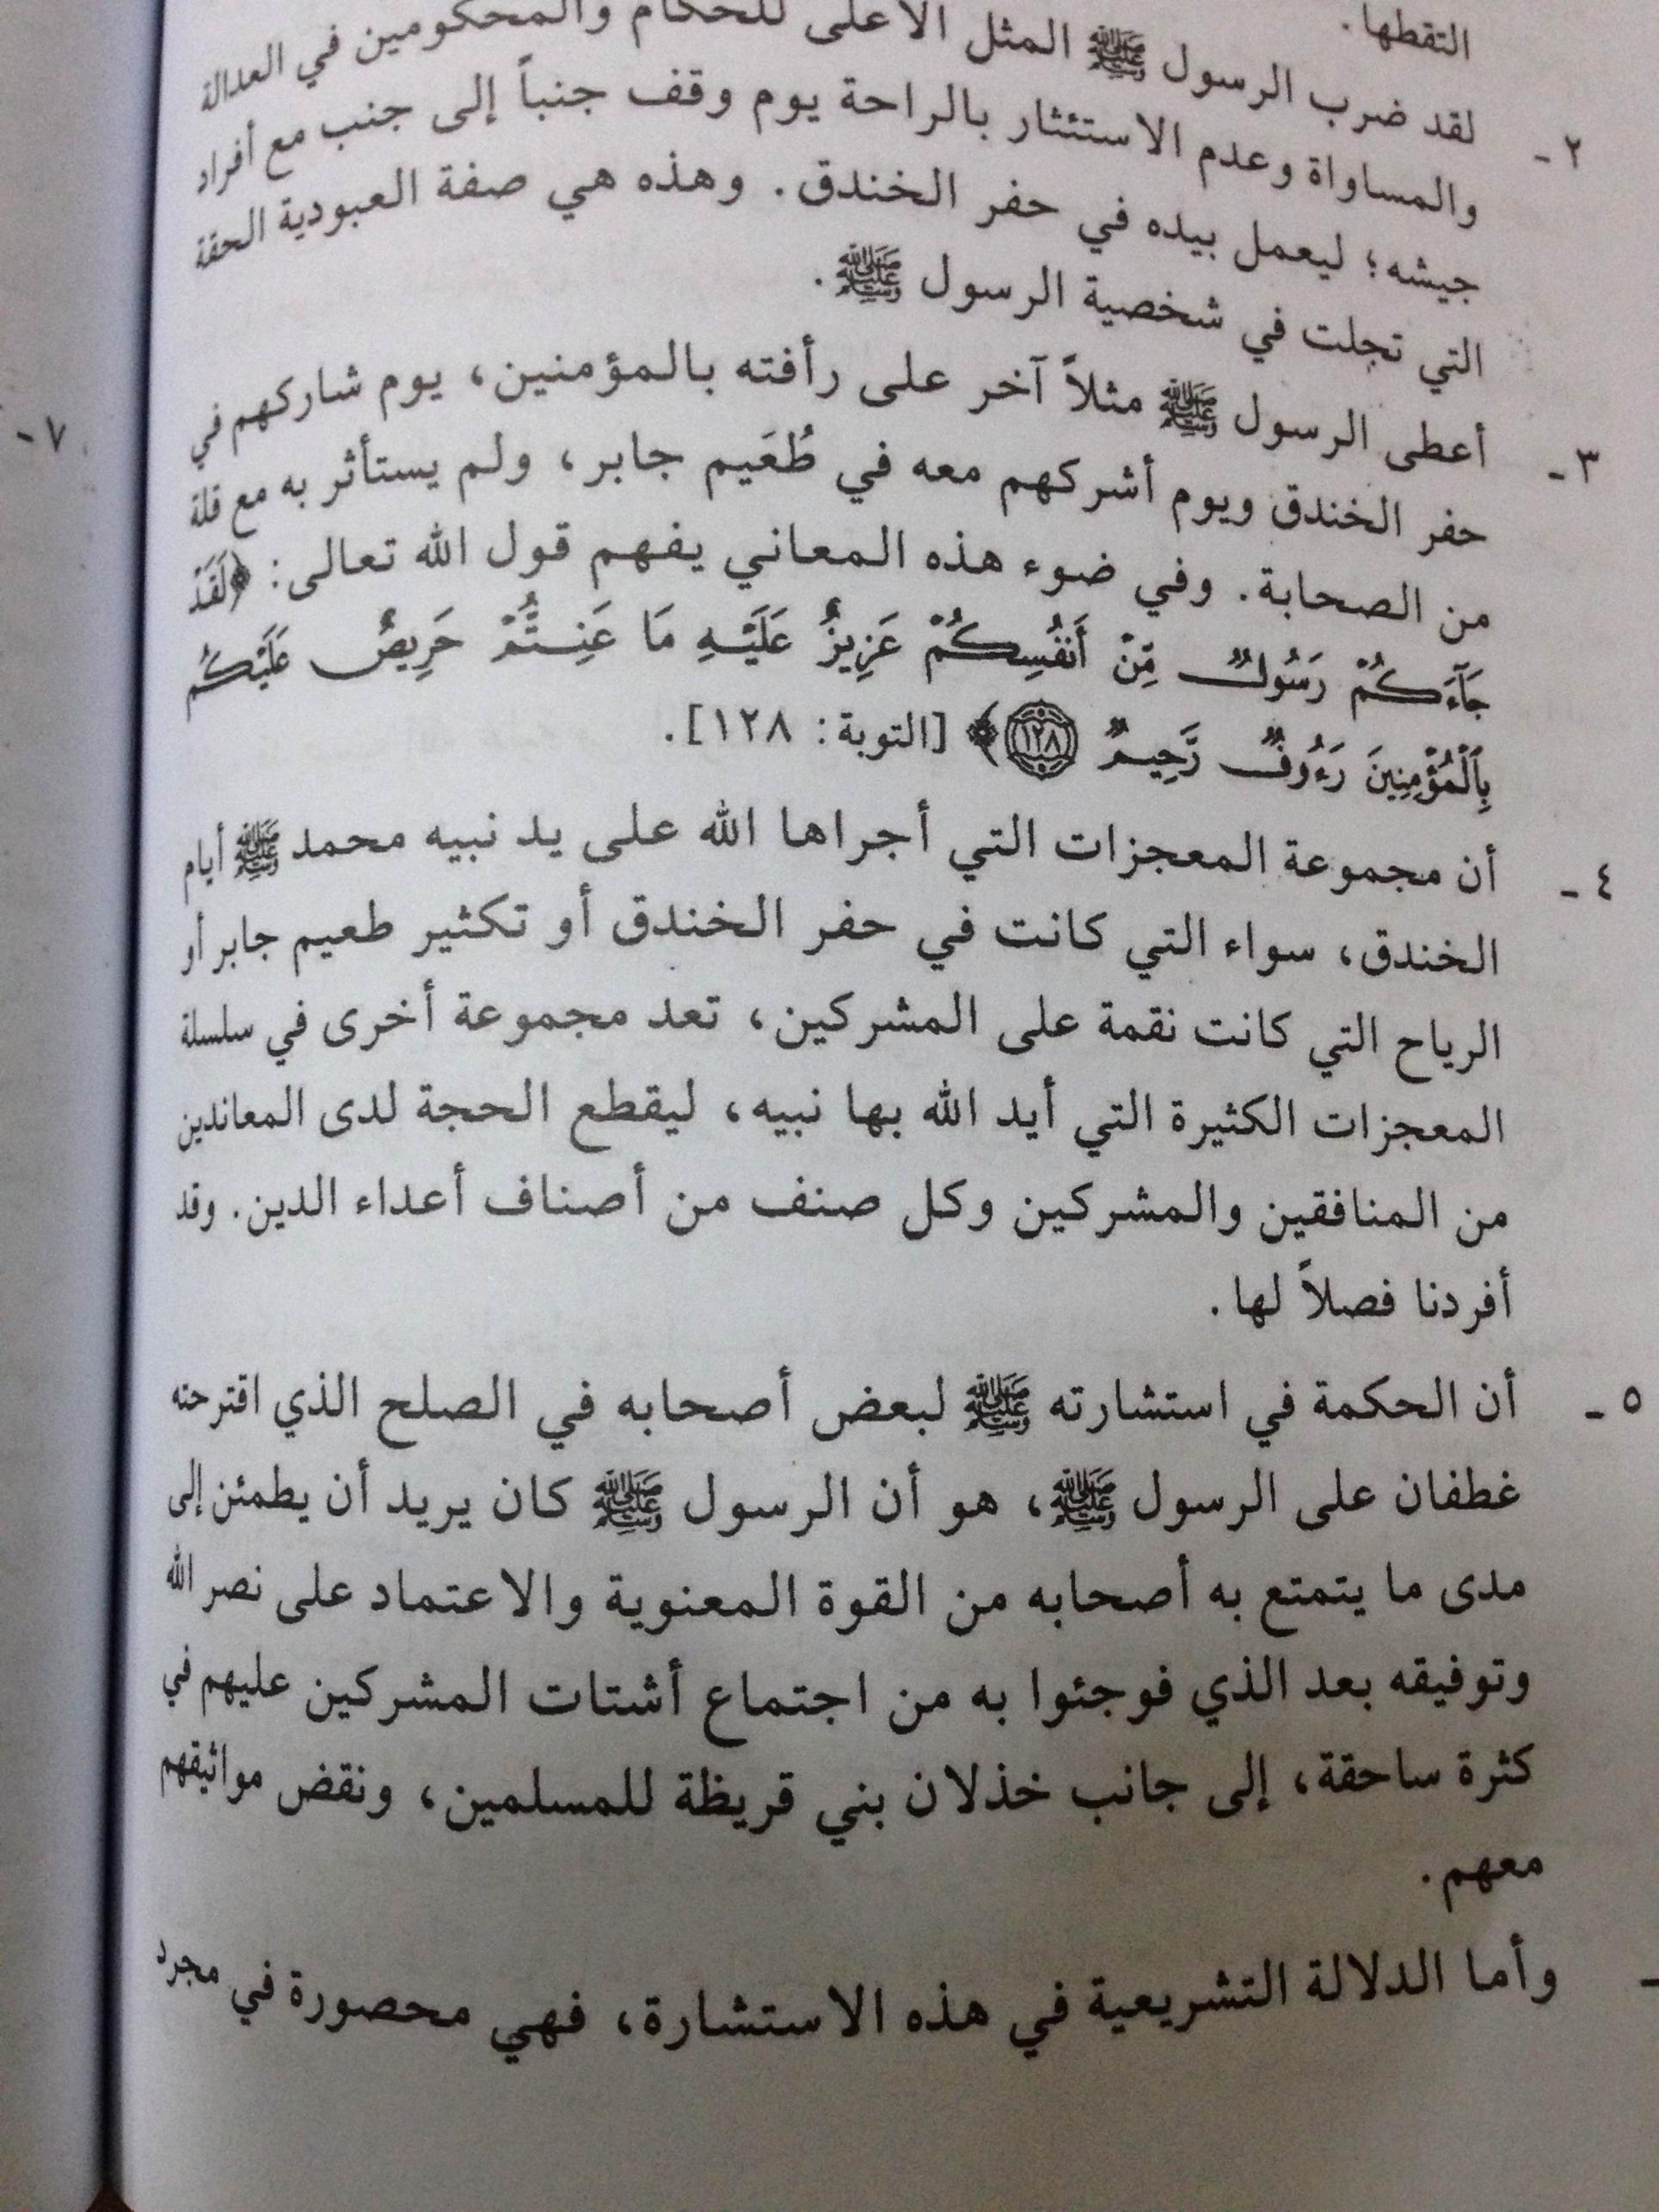 التقطها.
٢ - لقد ضرب الرسول ﷺ المثل الأعلى للحكام والمحكومين في العدالة
والمساواة وعدم الاستئثار بالراحة يوم وقف جنباً إلى جنب مع أفراد
جيشه؛ ليعمل بيده في حفر الخندق. وهذه هي صفة العبودية الحقة
التي تجلت في شخصية الرسول ﷺ.
٣ - أعطى الرسول ﷺ مثلاً آخر على رأفته بالمؤمنين، يوم شاركهم في
حفر الخندق ويوم أشركهم معه في طُعَيم جابر، ولم يستأثر به مع قلة
من الصحابة. وفي ضوء هذه المعاني يفهم قول الله تعالى: ﴿لَقَدْ
جَآءَكُمْ رَسُولٌ مِّنْ أَنفُسِكُمْ عَزِيزٌ عَلَيْهِ مَا عَنِتُّمْ حَرِيصٌ عَلَيْكُم
بِٱلْمُؤْمِنِينَ رَءُوفٌ رَّحِيمٌ ١٢٨﴾ [التوبة: ١٢٨].
٤ - أن مجموعة المعجزات التي أجراها الله على يد نبيه محمد ﷺ أيام
الخندق، سواء التي كانت في حفر الخندق أو تكثير طعيم جابر أو
الرياح التي كانت نقمة على المشركين، تعد مجموعة أخرى في سلسلة
المعجزات الكثيرة التي أيد الله بها نبيه، ليقطع الحجة لدى المعاندين
من المنافقين والمشركين وكل صنف من أصناف أعداء الدين. وقد
أفردنا فصلاً لها.
٥ - أن الحكمة في استشارته ﷺ لبعض أصحابه في الصلح الذي اقترحته
غطفان على الرسول ﷺ، هو أن الرسول ﷺ كان يريد أن يطمئن إلى
مدى ما يتمتع به أصحابه من القوة المعنوية والاعتماد على نصر الله
وتوفيقه بعد الذي فوجئوا به من اجتماع أشتات المشركين عليهم في
كثرة ساحقة، إلى جانب خذلان بني قريظة للمسلمين، ونقض مواثيقهم
معهم.
- وأما الدلالة التشريعية في هذه الاستشارة، فهي محصورة في مجرد
٧ -